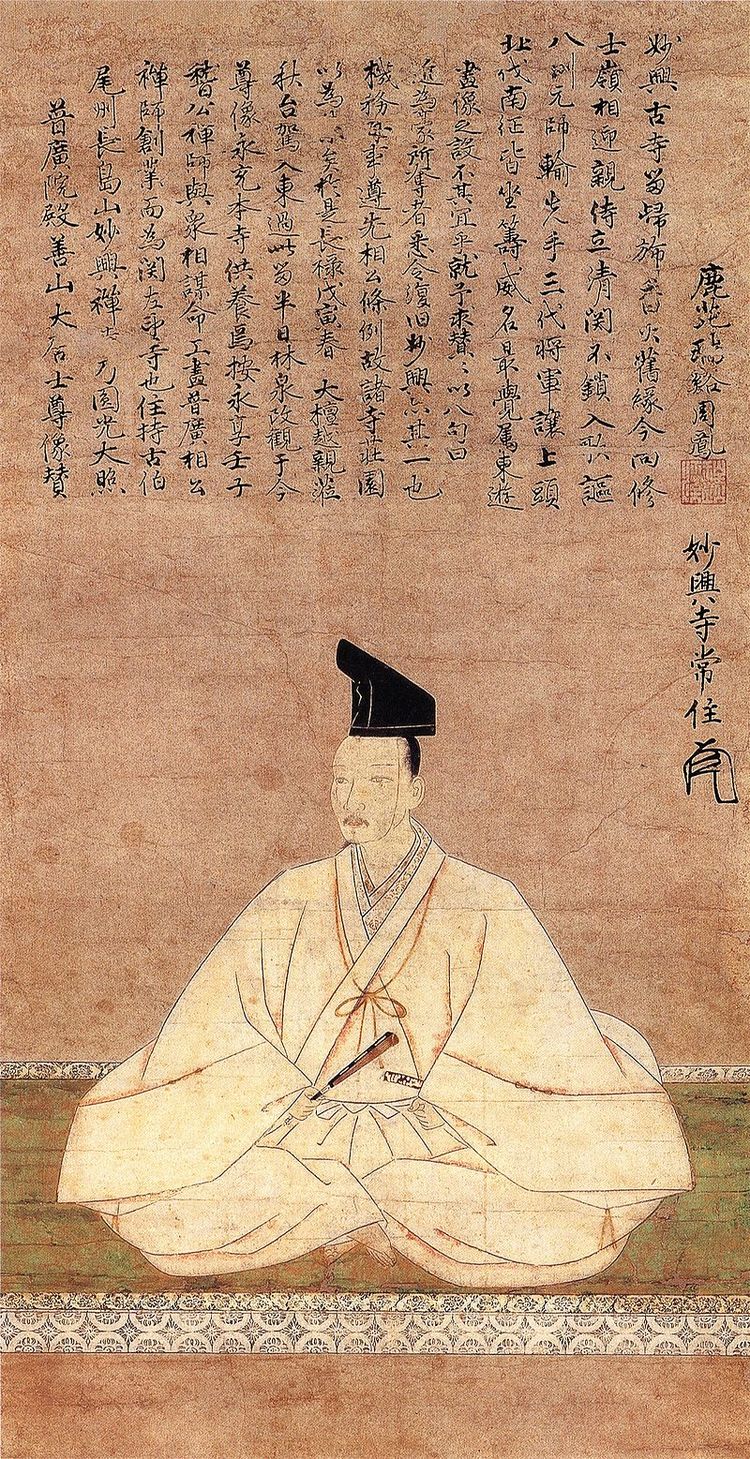 普廣院殿善山大居士尊像賛
尾州長島山妙興禅寺乃圓光大照
禅師創業而為関左望寺也住持古伯
稽公禅師與衆相謀命工畫普廣相公
尊像永充本寺供養焉按永享壬子
秋台駕入東過此留半日林泉改観于今
以為 於是長禄戊寅春 大檀越親莅
機務 事遵先相公條例故諸寺荘園
為豪所奪者悉令復旧妙興亦其一也
畫像之設不其宜乎就予求賛々以八句曰
北伐南征皆坐籌威名最覺属東遊
八州元帥輸先手三代将軍讓上頭
士嶺相迎親侍立清関不鎖入歌謳
妙興古寺留歸旆昔日舊縁今尚修
鹿苑瑞谿周鳳
妙興寺常住